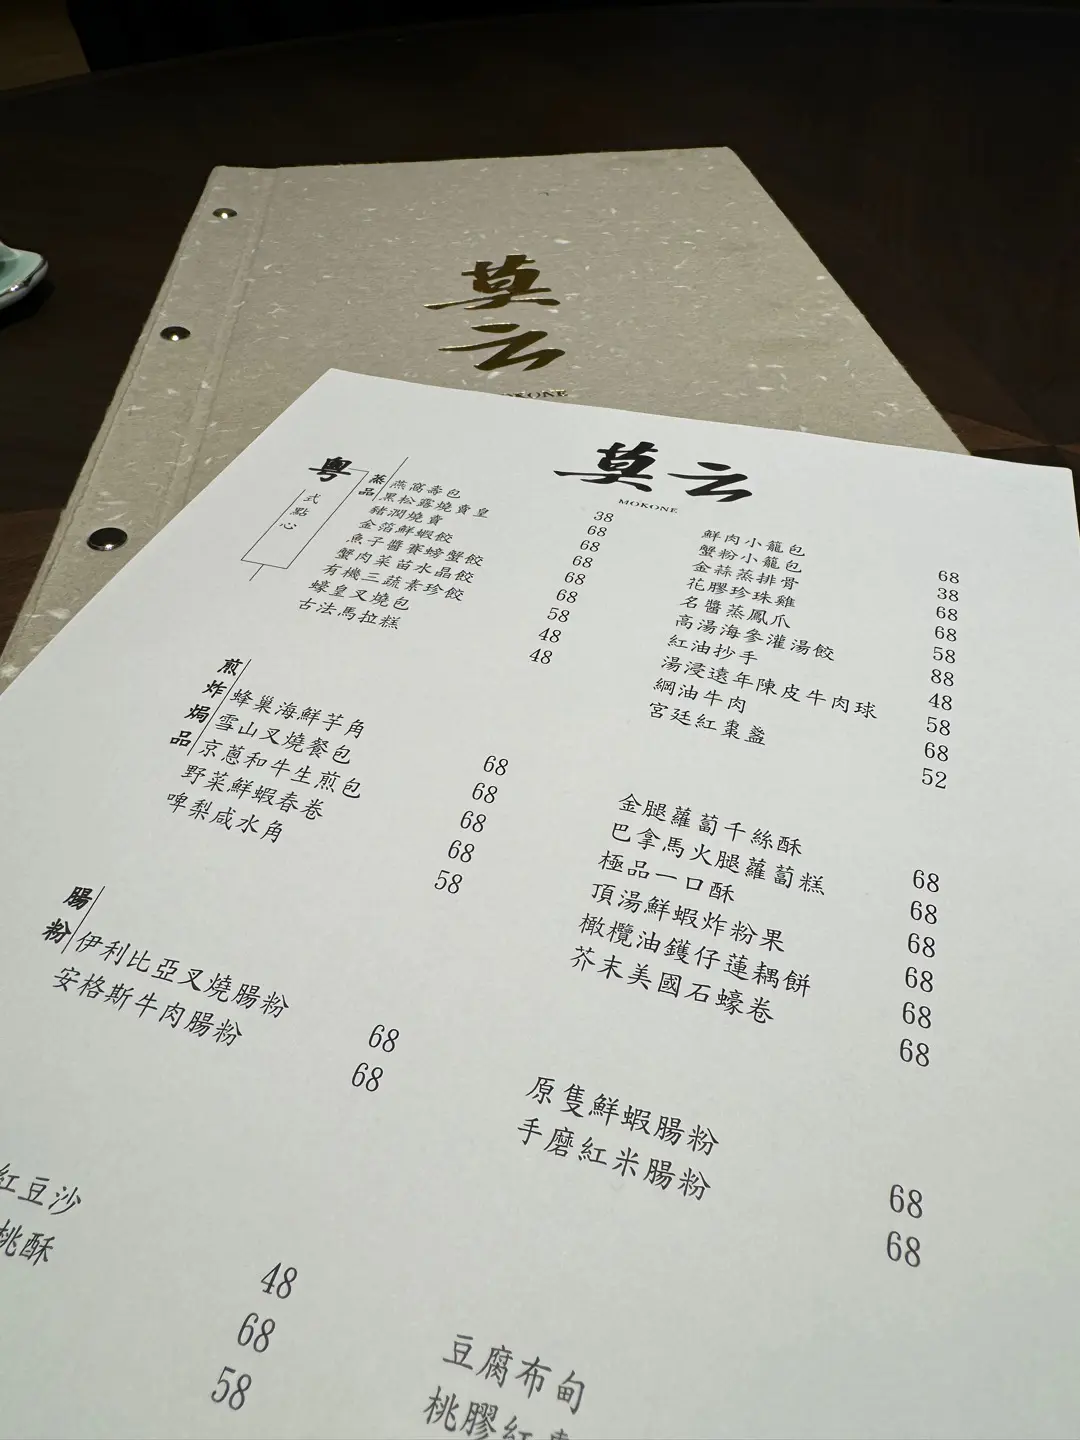 莫
云
莫云
MOKONE
粵
式點心
蒸品
燕窩壽包 38
黑松露燒賣皇 68
豬潤燒賣 68
金箔鮮蝦餃 68
魚子醬賽螃蟹餃 68
蟹肉菜苗水晶餃 68
有機三蔬素珍餃 58
蠔皇叉燒包 48
古法馬拉糕 48
鮮肉小籠包 68
蟹粉小籠包 38
金蒜蒸排骨 68
花膠珍珠雞 68
名醬蒸鳳爪 58
高湯海參灌湯餃 88
紅油抄手 48
湯浸遠年陳皮牛肉球 58
綱油牛肉 68
宮廷紅棗盞 52
煎炸焗品
蜂巢海鮮芋角 68
雪山叉燒餐包 68
京蔥和牛生煎包 68
野菜鮮蝦春卷 68
啤梨咸水角 58
金腿蘿蔔千絲酥 68
巴拿馬火腿蘿蔔糕 68
極品一口酥 68
頂湯鮮蝦炸粉果 68
橄欖油鑊仔蓮耦餅 68
芥末美國石蠔卷 68
腸粉
伊利比亞叉燒腸粉 68
安格斯牛肉腸粉 68
原隻鮮蝦腸粉 68
手磨紅米腸粉 68
紅豆沙 48
桃酥 68
58
豆腐布甸
桃膠紅